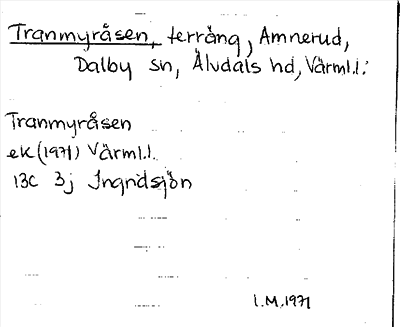 Tranmyråsen, terräng, Amnerud,
Dalby sn, Älvdals hd, Värml.l.
Tranmyråsen
ek (1971) Värml.l.
13C 3j Ingridsjön
I.M. 1971